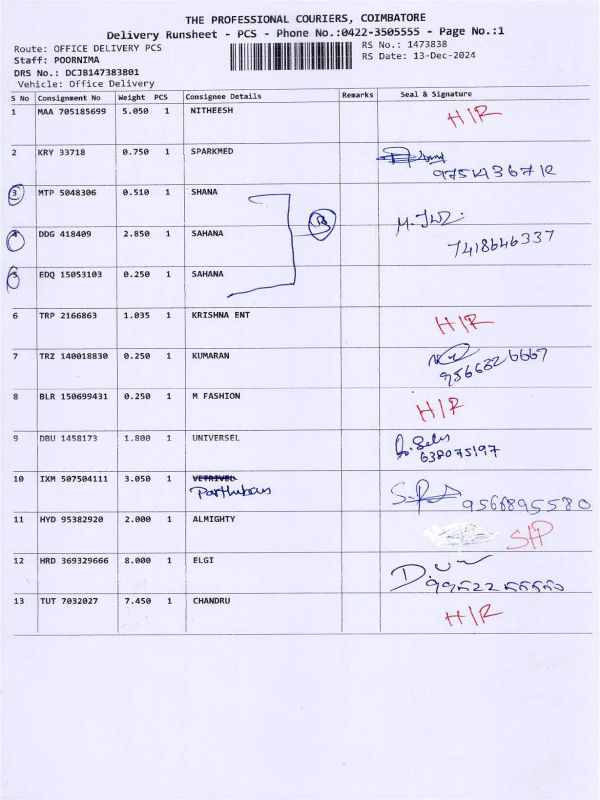 THE PROFESSIONAL COURIERS, COIMBATORE
Delivery Runsheet - PCS - Phone No.:0422-3505555 - Page No.:1
Route: OFFICE DELIVERY PCS
RS No.: 1473838
Staff: POORNIMA
RS Date: 13-Dec-2024
DRS No.: DCJB147383801
Vehicle: Office Delivery
S No Consignment No Weight PCS Consignee Details Remarks Seal & Signature
1 MAA 705185699 5.050 1 NITHEESH H/R
2 KRY 33718 0.750 1 SPARKMED
9751436712
3 MTP 5048306 0.510 1 SHANA
4 DDG 418409 2.850 1 SAHANA
7418646337
5 EDQ 15053103 0.250 1 SAHANA
6 TRP 2166863 1.035 1 KRISHNA ENT H/R
7 TRZ 140018830 0.250 1 KUMARAN
8 BLR 150699431 0.250 1 M FASHION H/R
9 DBU 1458173 1.800 1 UNIVERSEL
638075197
10 IXM 507504111 3.050 1 VETRIVEL
9566895580
11 HYD 95382920 2.000 1 ALMIGHTY
12 HRD 369329666 8.000 1 ELGI
13 TUT 7032027 7.450 1 CHANDRU H/R